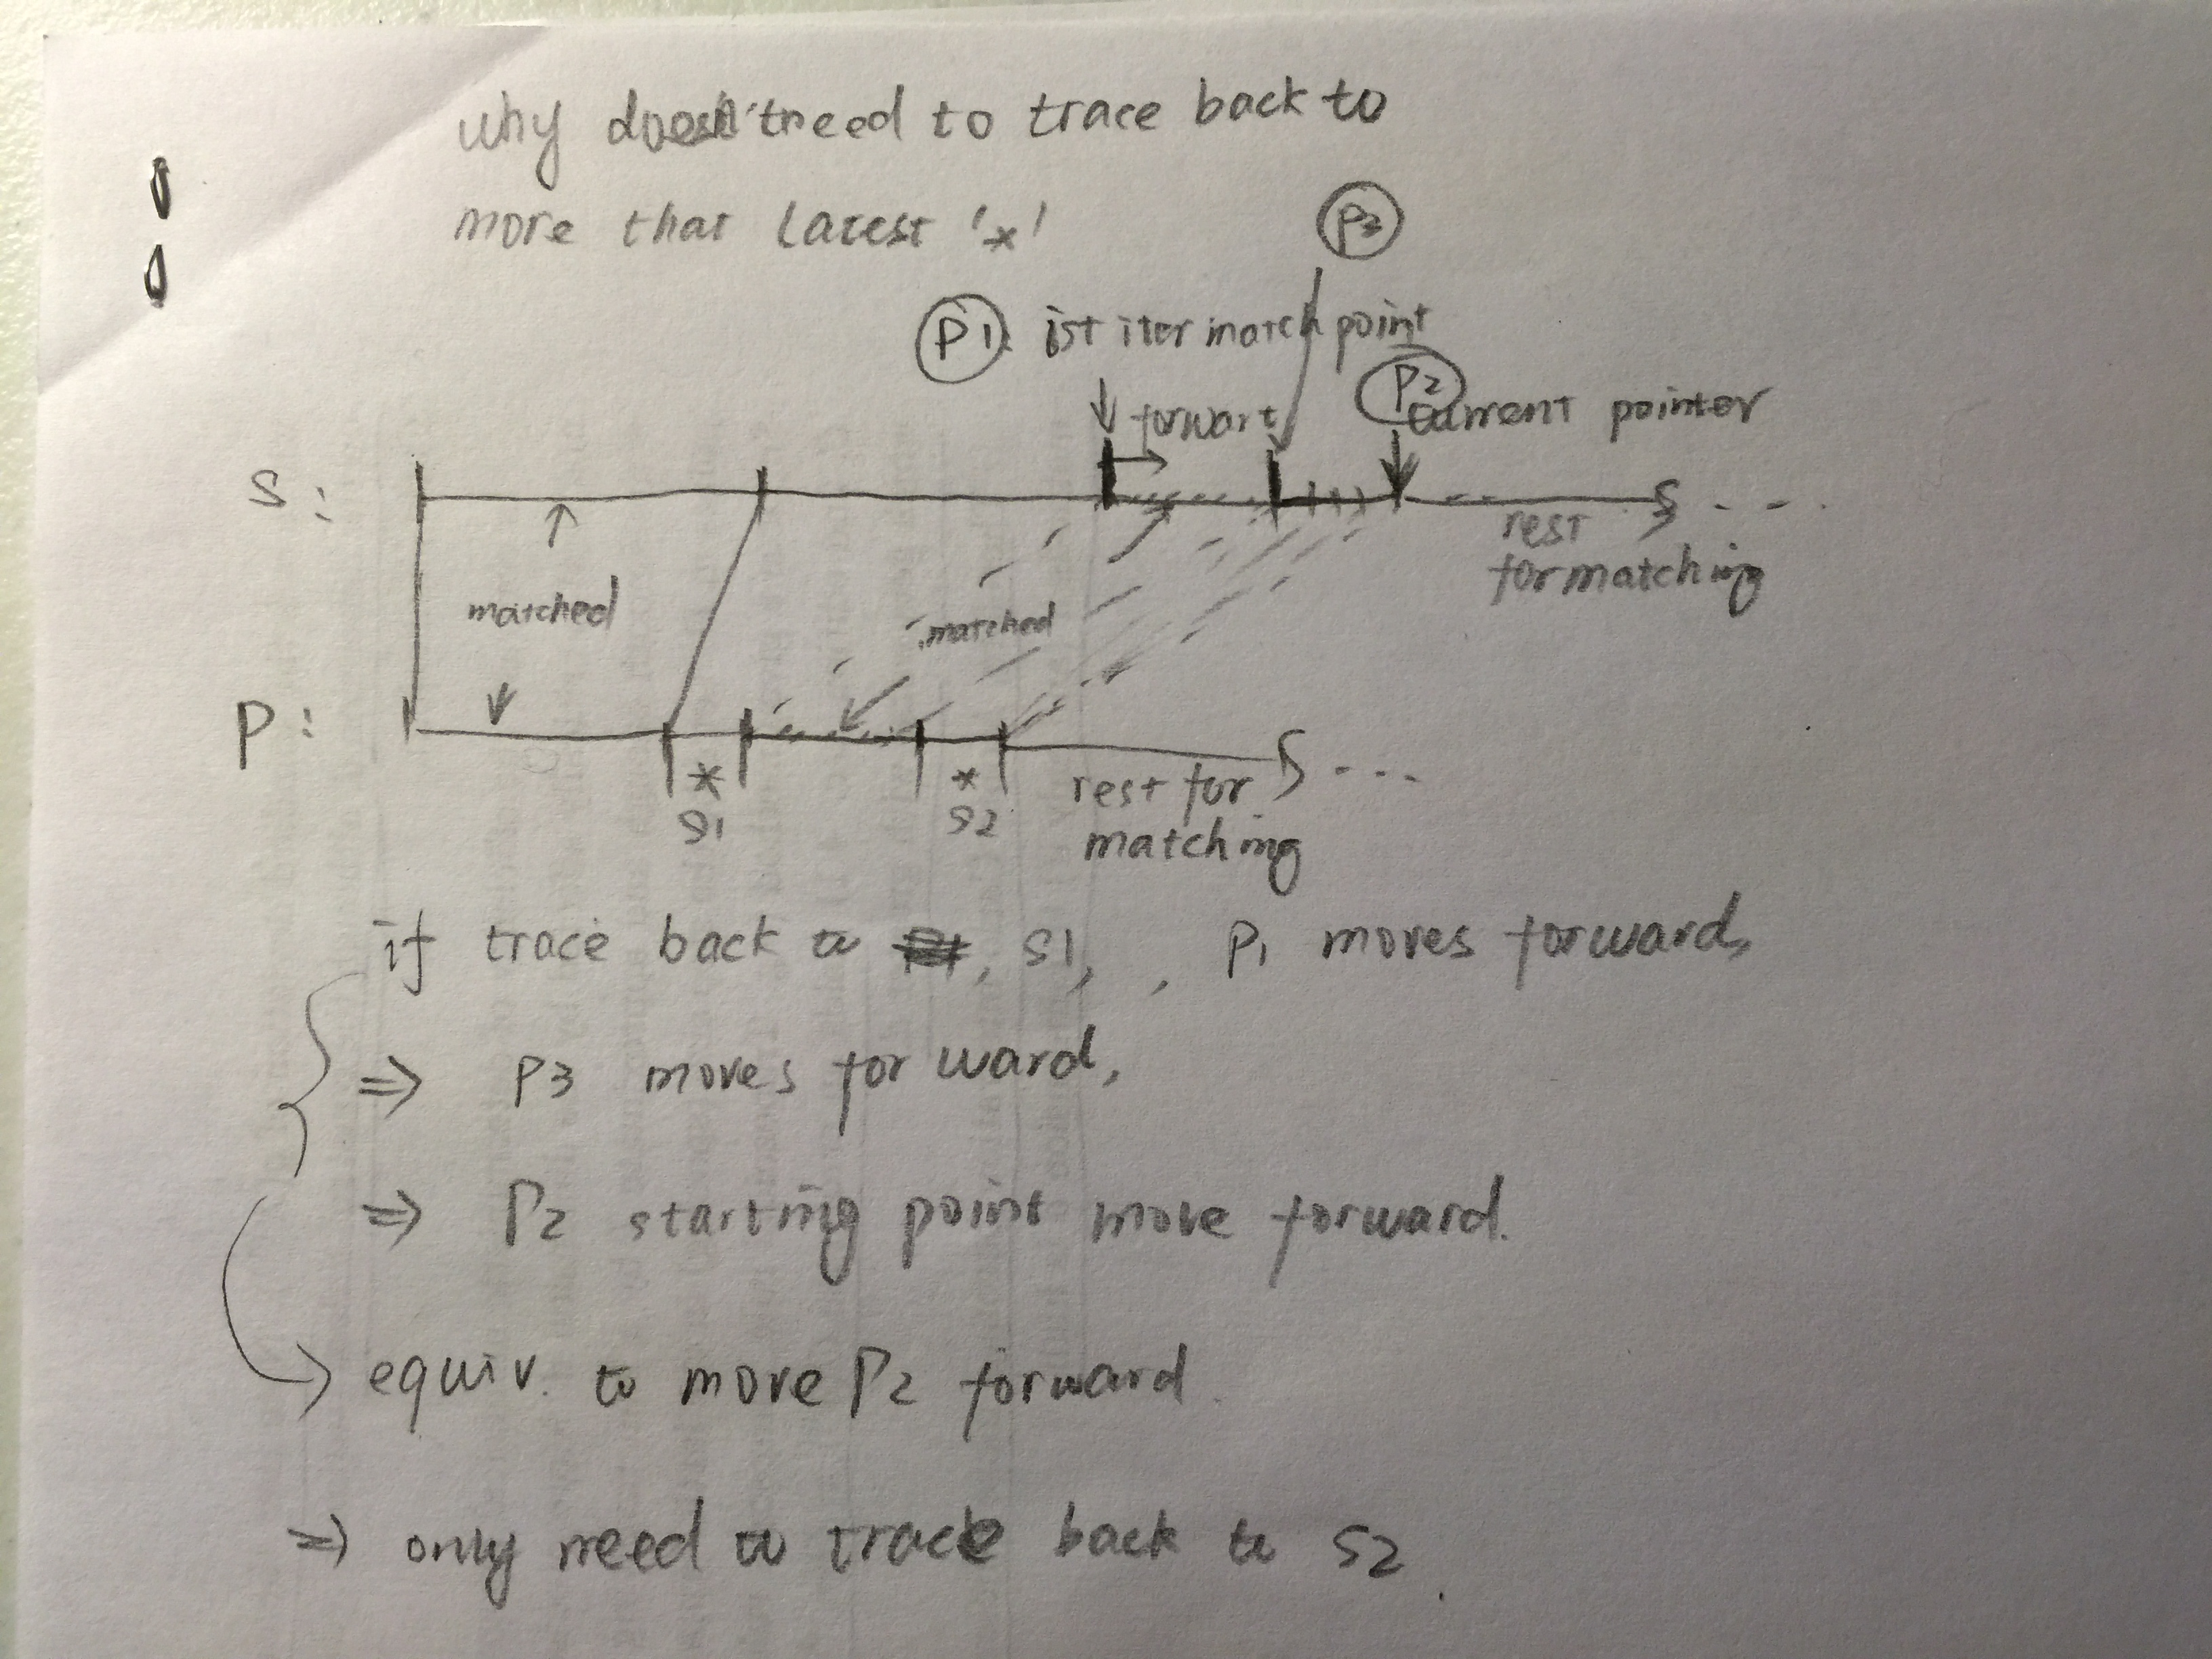 why doesn't need to trace back to
more than latest '*'
P3
P1 1st iter match point
forward
P2 current pointer
S:
rest
for matching
matched
matched
P:
* *
S1 S2
rest for
matching
if trace back to S1, P1 moves forward,
⇒ P3 moves forward,
⇒ P2 starting point move forward.
equiv. to move P2 forward
⇒ only need to trace back to S2.